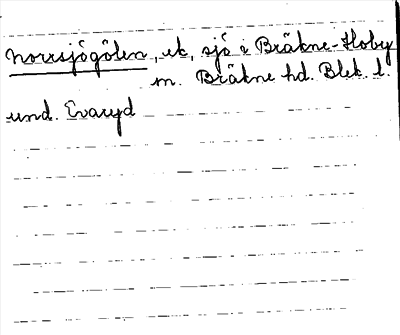 Norrsjögölen, ek, sjö i Bräkne-Hoby
m. Bräkne hd. Blek. l.
und. Evaryd